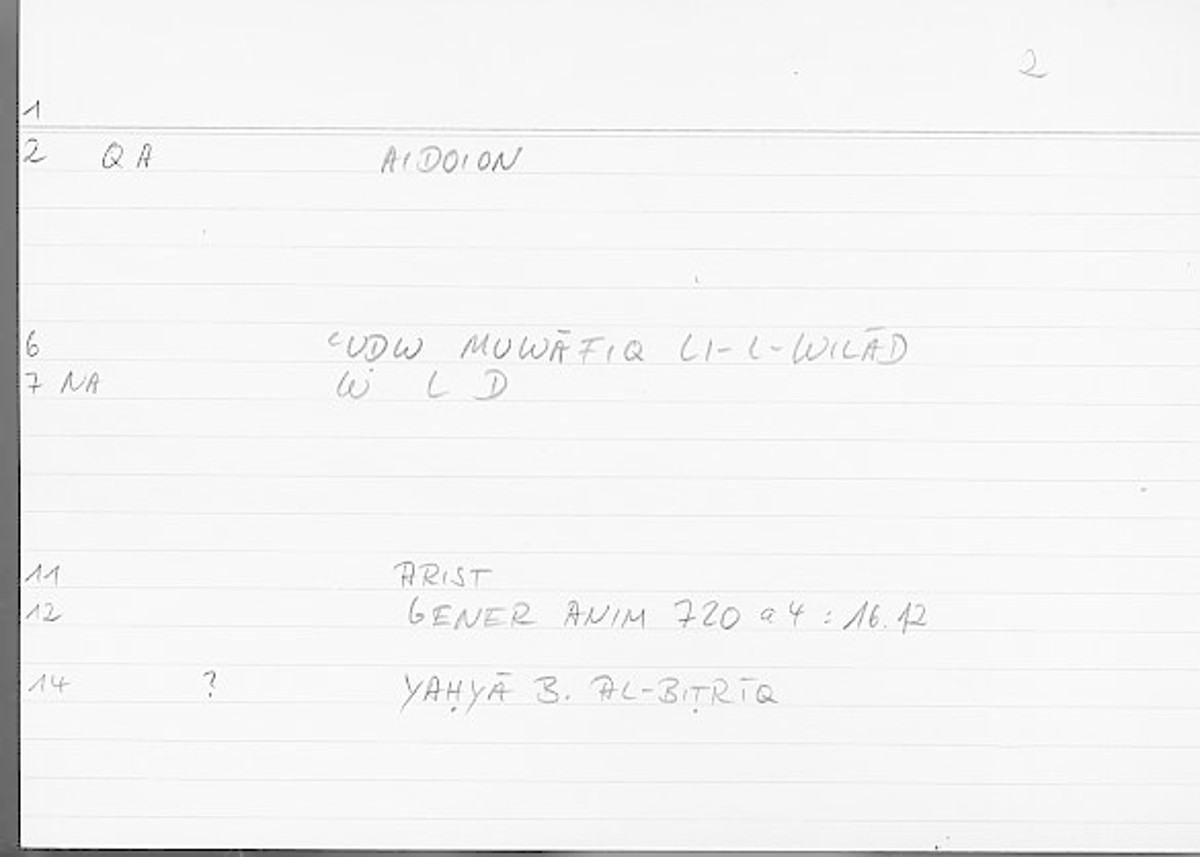 2
1
2 QA AIDOION
6 ʿUḌW MUWĀFIQ LI-L-WILĀD
7 NA W L D
11 ARIST
12 GENER ANIM 720 a 4 : 16.12
14 ? YAḤYĀ B. AL-BIṬRĪQ